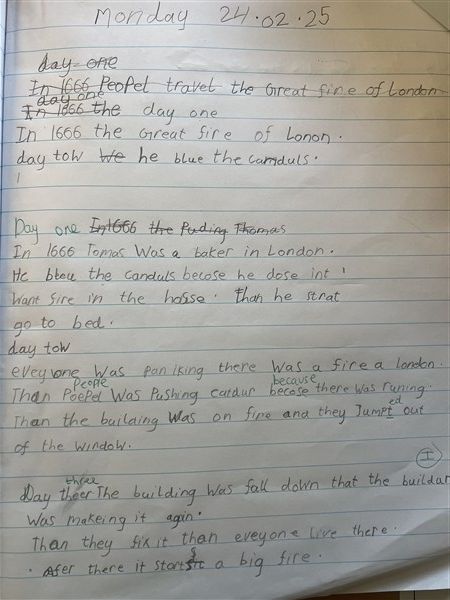 Monday 24.02.25
day one
In 1666 Peopel travel the Great fire of London
day one
In 1666 the day one
In 1666 the Great fire of Lonon.
day tow We he blue the canduls.
Day one In 1666 the Puding Thomas
In 1666 Tomas Was a baker in London.
He blou the canduls becose he dose int
Want fire in the hosse. than he strat
go to bed.
day tow
eveyone Was paniking there Was a fire a london.
People because
Than Poepel Was Pushing becose there was runing.
Than the building Was on fire and they Jumpt ed out
of the window.
I
three
Day theer The building Was fall down that the buildar
Was makeing it agin.
Than they fix it than eveyone live there.
Afer there it start a big fire.